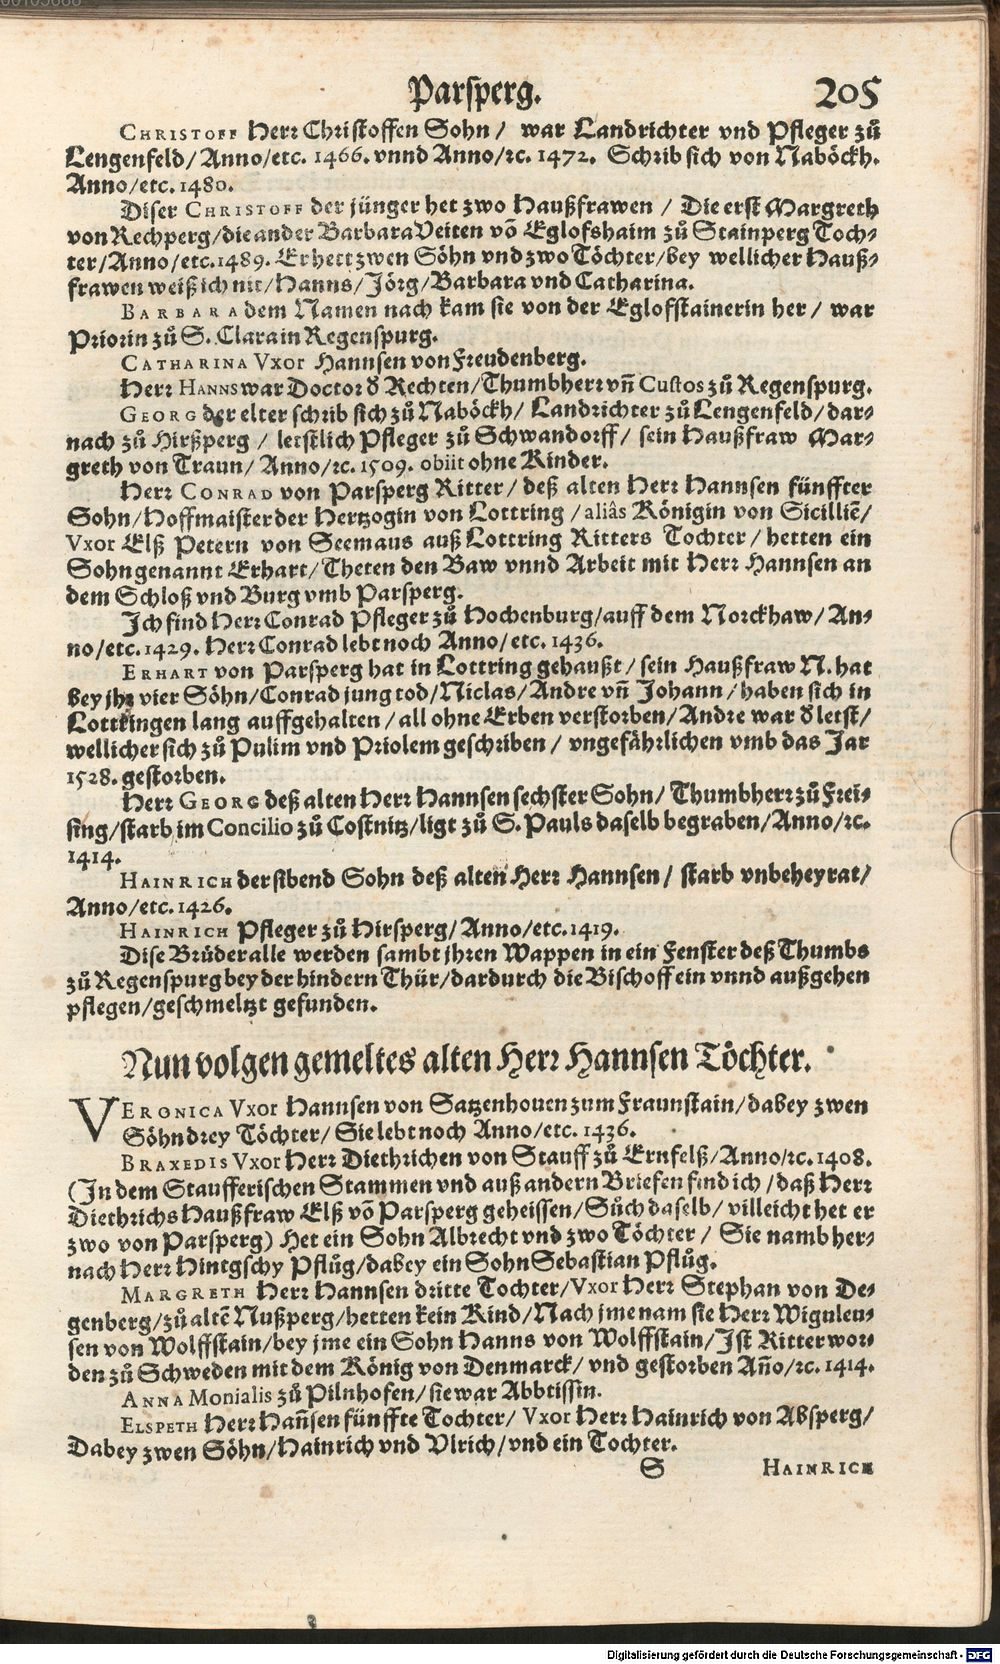 Parsperg. 205
CHRISTOFF Herr Christoffen Sohn / war Landrichter vnd Pfleger zů
Lengenfeld / Anno / etc. 1466. vnnd Anno / ꝛc. 1472. Schrib sich von Naböckh.
Anno / etc. 1480.
Diser CHRISTOFF der jünger het zwo Haußfrawen / Die erst Margreth
von Rechperg / die ander Barbara Veiten võ Eglofshaim zů Stainperg Toch-
ter / Anno / etc. 1489. Er hett zwen Söhn vnd zwo Töchter / bey wellicher Hauß-
frawen weiß ich nit / Hanns / Jörg / Barbara vnd Catharina.
BARBARA dem Namen nach kam sie von der Eglofstainerin her / war
Priorin zů S. Clara in Regenspurg.
CATHARINA Vxor Hannsen von Freudenberg.
Herr HANNS war Doctor d̕ Rechten / Thumbherr vñ Custos zů Regenspurg.
GEORG der elter schrib sich zů Naböckh / Landrichter zů Lengenfeld / dar-
nach zů Hirßperg / letstlich Pfleger zů Schwandorff / sein Haußfraw Mar-
greth von Traun / Anno / ꝛc. 1509. obiit ohne Kinder.
Herr CONRAD von Parsperg Ritter / deß alten Herr Hannsen fünffter
Sohn / Hoffmaister der Hertzogin von Lottring / aliâs Königin von Sicilliẽ /
Vxor Elß Petern von Seemaus auß Lottring Ritters Tochter / hetten ein
Sohn genannt Erhart / Theten den Baw vnnd Arbeit mit Herr Hannsen an
dem Schloß vnd Burg vmb Parsperg.
Ich find Herr Conrad Pfleger zů Hochenburg / auff dem Norckhaw / An-
no / etc. 1429. Herr Conrad lebt noch Anno / etc. 1436.
ERHART von Parsperg hat in Lottring gehaußt / sein Haußfraw N. hat
bey jhr vier Söhn / Conrad jung tod / Niclas / Andre vñ Johann / haben sich in
Lottringen lang auffgehalten / all ohne Erben verstorben / Andre war d̕ letst /
wellicher sich zů Pulim vnd Priolem geschriben / vngefährlichen vmb das Jar
1528. gestorben.
Herr GEORG deß alten Herr Hannsen sechster Sohn / Thumbherr zů Frei-
sing / starb im Concilio zů Costnitz / ligt zů S. Pauls daselb begraben / Anno / ꝛc.
1414.
HAINRICH der sibend Sohn deß alten Herr Hannsen / starb vnbeheyrat /
Anno / etc. 1426.
HAINRICH Pfleger zů Hirsperg / Anno / etc. 1419.
Dise Brüder alle werden sambt jhren Wappen in ein Fenster deß Thumbs
zů Regenspurg bey der hindern Thür / dardurch die Bischoff ein vnnd außgehen
pflegen / geschmeltzt gefunden.
Nun volgen gemeltes alten Herr Hannsen Töchter.
VERONICA Vxor Hannsen von Satzenhouen zum Fraunstain / dabey zwen
Söhn drey Töchter / Sie lebt noch Anno / etc. 1436.
BRAXEDIS Vxor Herr Diethrichen von Stauff zů Ernfelß / Anno / ꝛc. 1408.
(In dem Staufferischen Stammen vnd auß andern Briefen find ich / daß Herr
Diethrichs Haußfraw Elß võ Parsperg geheissen / Sůch daselb / villeicht het er
zwo von Parsperg) Het ein Sohn Albrecht vnd zwo Töchter / Sie namb her-
nach Herr Hintgschy Pflůg / dabey ein Sohn Sebastian Pflůg.
MARGRETH Herr Hannsen dritte Tochter / Vxor Herr Stephan von De-
genberg / zů altẽ Nußperg / hetten kein Kind / Nach jme nam sie Herr Wiguleu-
sen von Wolffstain / bey jme ein Sohn Hanns von Wolffstain / Ist Ritter wor-
den zů Schweden mit dem König von Denmarck / vnd gestorben Añо / ꝛc. 1414.
ANNA Monialis zů Pilnhofen / sie war Abbtissin.
ELSPETH Herr Hañsen fünffte Tochter / Vxor Herr Hainrich von Absperg /
Dabey zwen Söhn / Hainrich vnd Vlrich / vnd ein Tochter.
S HAINRICH
Digitalisierung gefördert durch die Deutsche Forschungsgemeinschaft - DFG